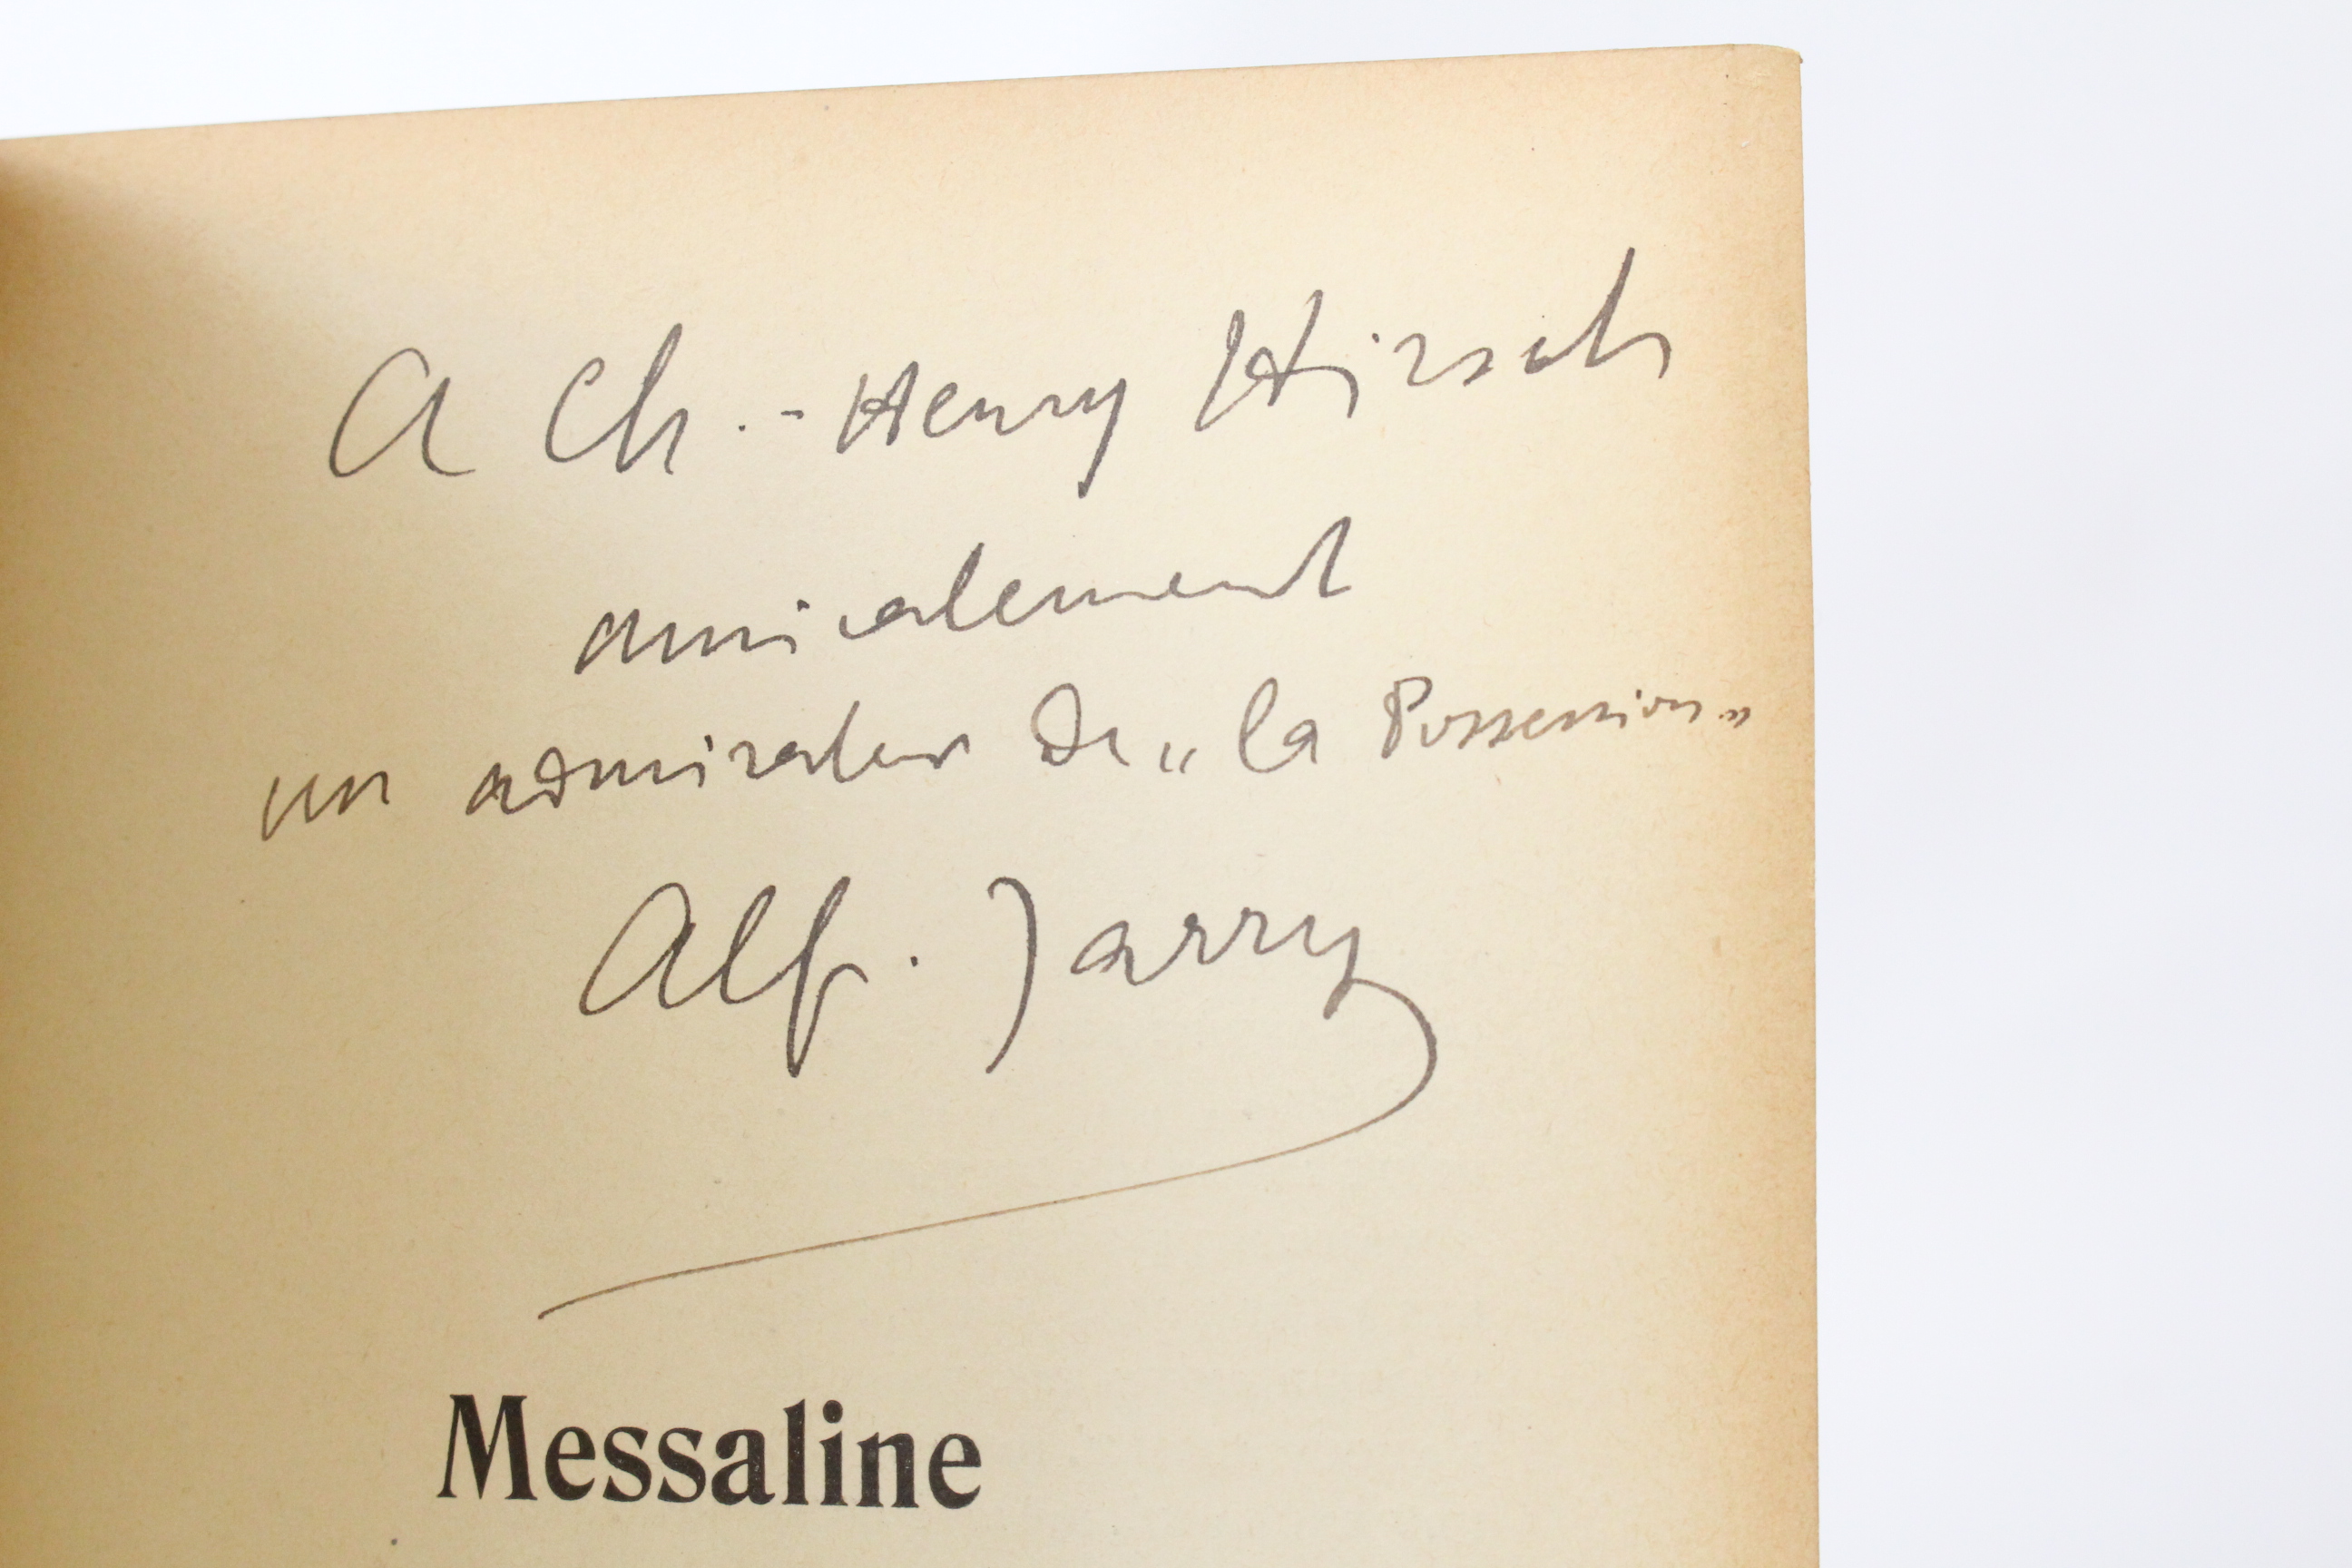 A Ch.-Henry Hirsch
amicalement
un admirateur de „la Possession"
Alf. Jarry
Messaline